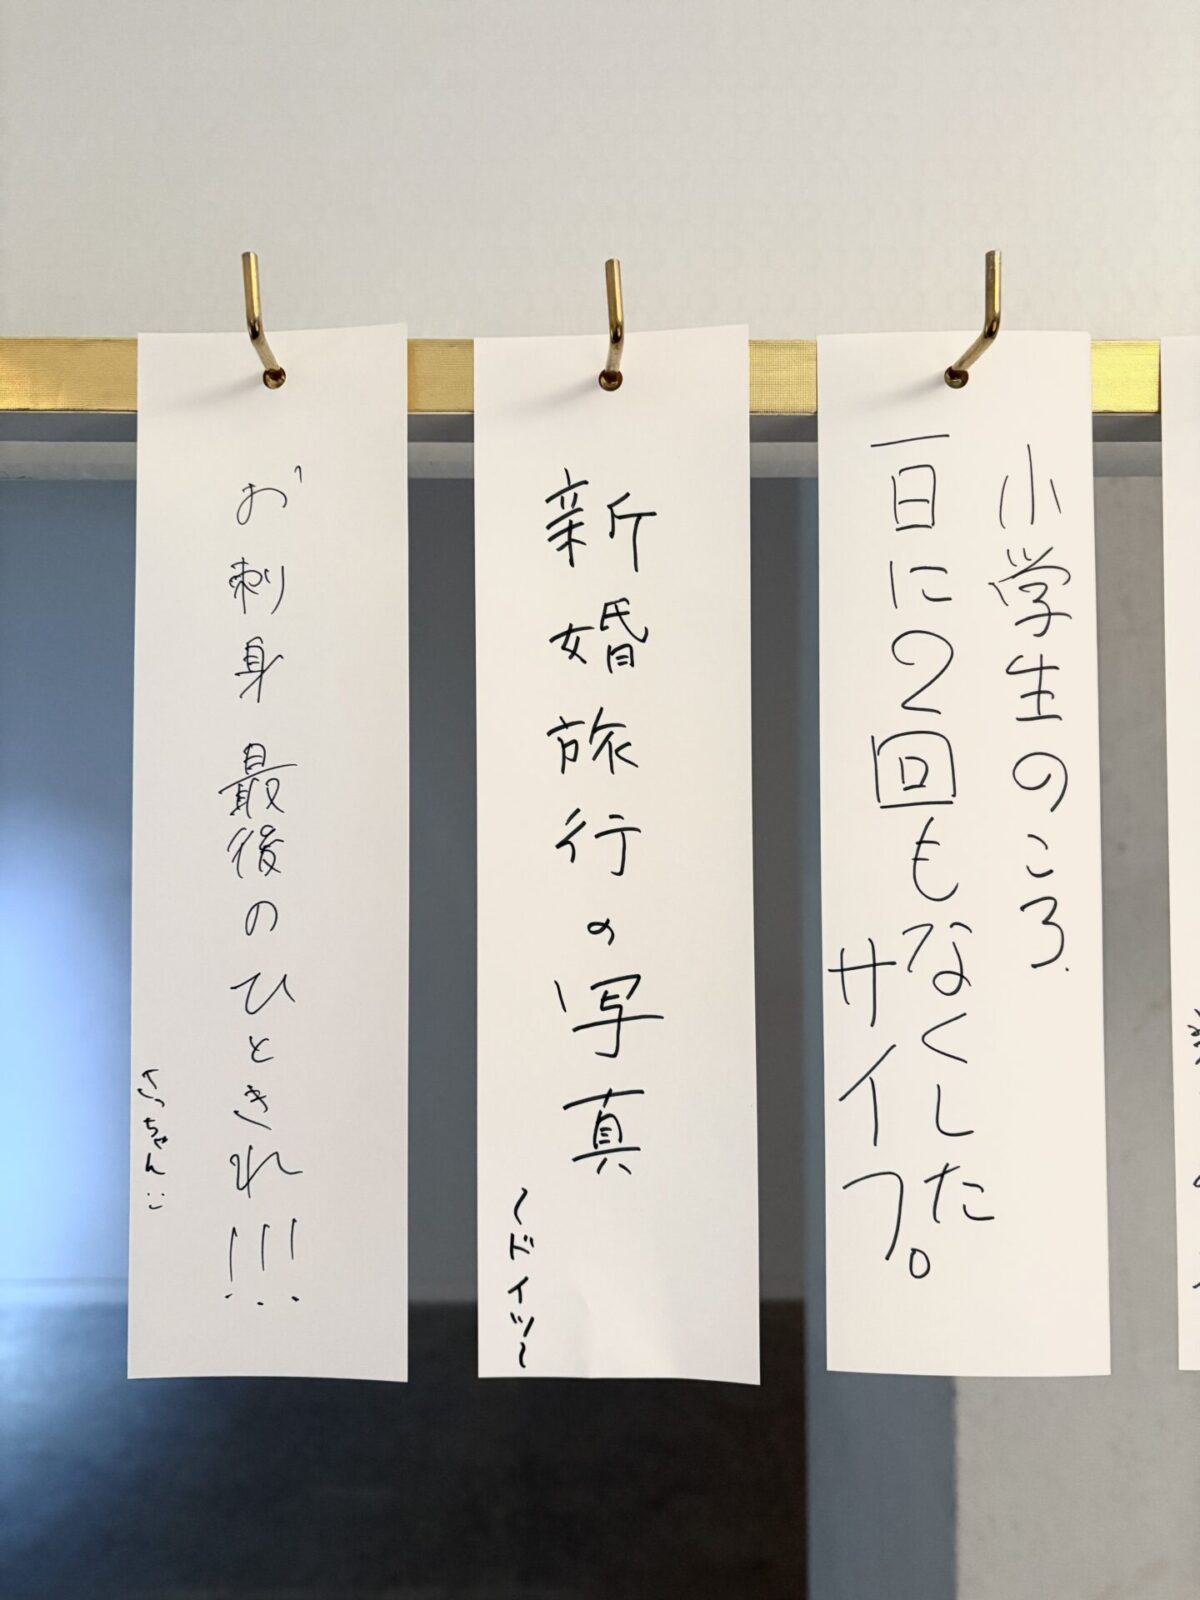 小学生のころ、
一日に2回もなくした
サイフ。
新婚旅行の写真
〜ドイツ〜
お刺身 最後のひときれ!!!
さっちゃん:)